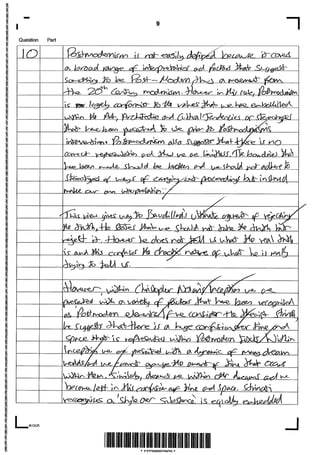 9
Question Part
10 Postmodernism is not easily defined because it covers
a broad range of interpretations and factors that suggest
something to be Post-Modern, thus a movement from
the 20th Century modernism. However in this case, Postmodernism
is not largely conformist to the values that we have established
within the Art, Architecture and Cultural Tendencies or Stereotypes
that have been perceived to us prior to Postmodernisms
intervention. Postmodernism also suggests that there is no
correct representation and that we are limitless. The boundries that
have been made should be broken and we should not adhere to
Stereotypes of ways of carrying and proceeding but instead
make our own interpretation.
This view gives way to Baudrillard ultimate argument of rejecting
the truth, He states that we should not take the truth but
reject it. However he does not tell us what the real truth
is and this confuses the chaotic nature of what he is really
trying to tell us.
However, within Christopher Nolan's Inception we are
presented with a variety of factors that have been recognised
as Postmodern elements. If we consider the Strinati,
he suggests that there is a huge confusion over time and
space that is represented within Postmodern texts. Within
Inception we are presented with a dynamic of many dream
worlds and we cannot the amount of time that occurs
within them. Similarly, dreams are within other dreams and we
become left in this confusion of time and space. Strinati
recognises a 'style over substance' is equally embedded